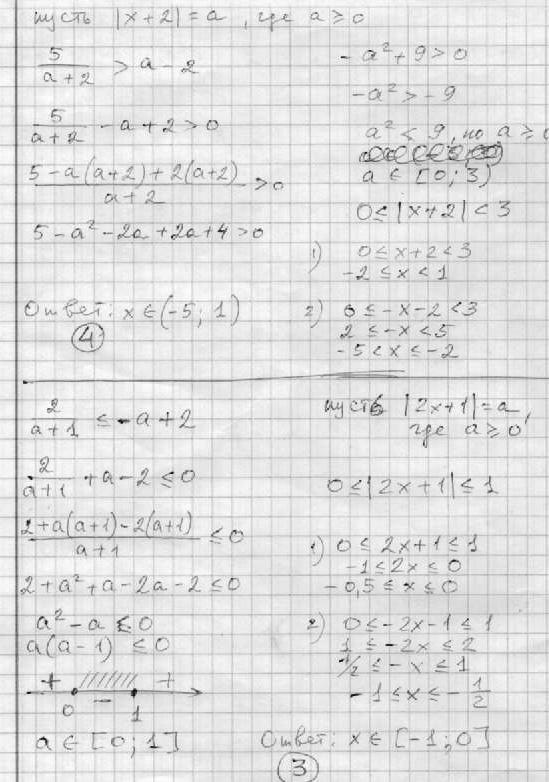 пусть |x+2| = a, где a ≥ 0
5/(a+2) > a - 2
5/(a+2) - a + 2 > 0
(5 - a(a+2) + 2(a+2))/(a+2) > 0
5 - a² - 2a + 2a + 4 > 0
-a² + 9 > 0
-a² > -9
a² < 9, но a ≥ 0
a ∈ [0; 3)
0 ≤ |x+2| < 3
1) 0 ≤ x+2 < 3
-2 ≤ x < 1
2) 0 ≤ -x-2 < 3
2 ≤ -x < 5
-5 < x ≤ -2
Ответ: x ∈ (-5; 1)
4
пусть |2x+1| = a,
где a ≥ 0
2/(a+1) ≤ -a + 2
2/(a+1) + a - 2 ≤ 0
(2 + a(a+1) - 2(a+1))/(a+1) ≤ 0
2 + a² + a - 2a - 2 ≤ 0
a² - a ≤ 0
a(a-1) ≤ 0
+ - +
0 1
a ∈ [0; 1]
0 ≤ |2x+1| ≤ 1
1) 0 ≤ 2x+1 ≤ 1
-1 ≤ 2x ≤ 0
-0,5 ≤ x ≤ 0
2) 0 ≤ -2x-1 ≤ 1
1 ≤ -2x ≤ 2
1/2 ≤ -x ≤ 1
-1 ≤ x ≤ -1/2
Ответ: x ∈ [-1; 0]
3